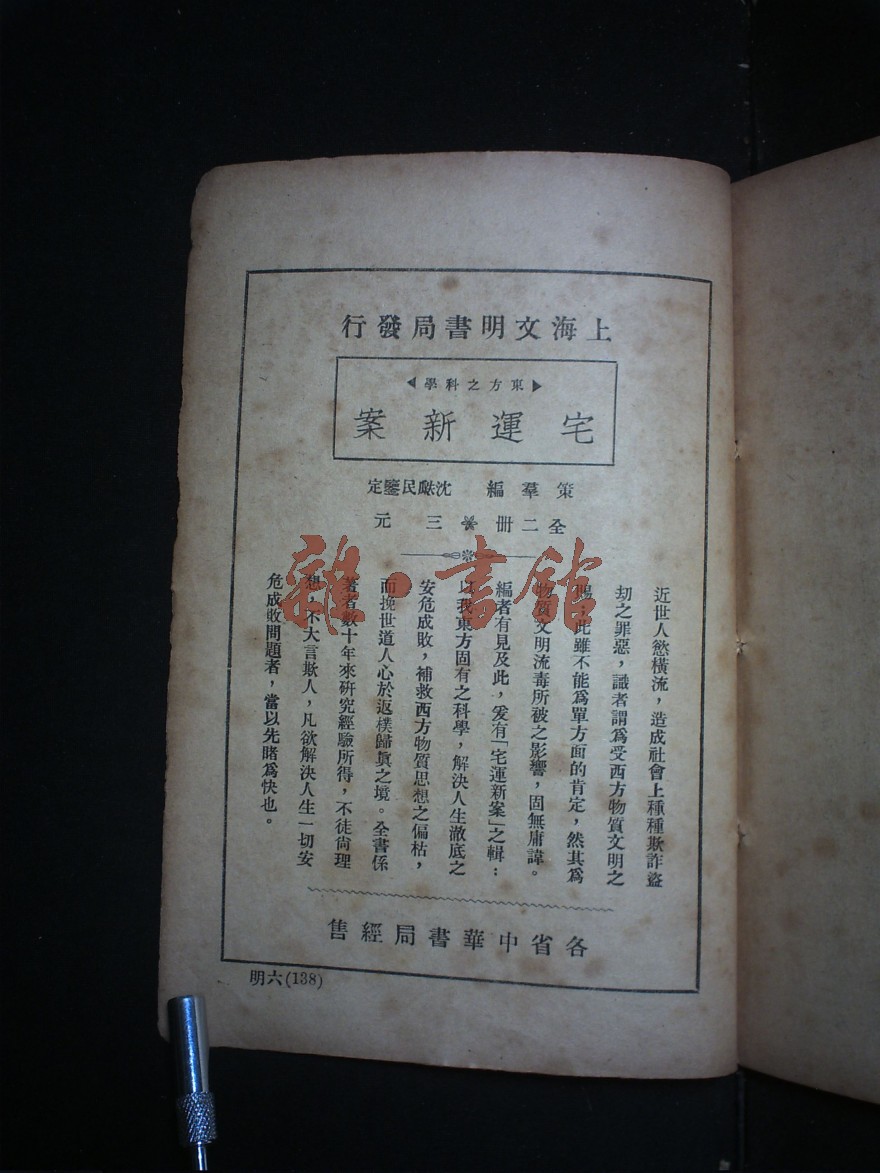 上海文明書局發行
▶東方之科學◀
宅運新案
策羣編 沈㼈民鑒定
全二冊 三元
近世人慾橫流，造成社會上種種欺詐盜
劫之罪惡，識者謂爲受西方物質文明之
賜；此雖不能爲單方面的肯定，然其爲
物質文明流毒所被之影響，固無庸諱。
編者有見及此，爰有「宅運新案」之輯：
以我東方固有之科學，解決人生澈底之
安危成敗，補救西方物質思想之偏枯，
而挽世道人心於返樸歸眞之境。全書係
著者數十年來研究經驗所得，不徒尙理
想，不大言欺人，凡欲解決人生一切安
危成敗問題者，當以先睹爲快也。
各省中華書局經售
明六(138)
雜·書館